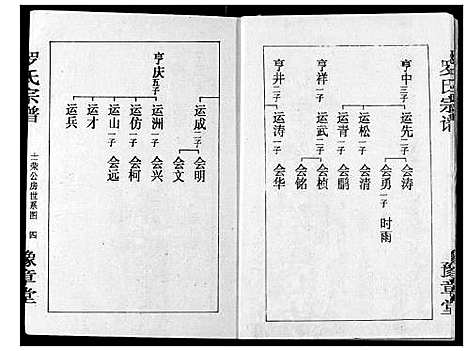 罗氏宗谱
豫章堂
亨中三子
运先二子
会涛
会勇一子
时雨
运松一子
会清
运青一子
会鹏
亨祥一子
运武二子
会桢
会铭
亨井二子
运涛一子
会华
运成二子
会明
会文
亨庆五子
运洲一子
会兴
运仿一子
会柯
运山一子
会远
运才
运兵
罗氏宗谱
士荣公房世系图 四
豫章堂